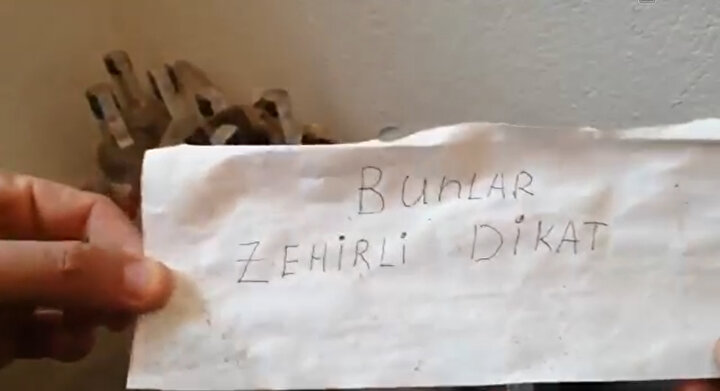 BUNLAR
ZEHİRLİ DİKAT